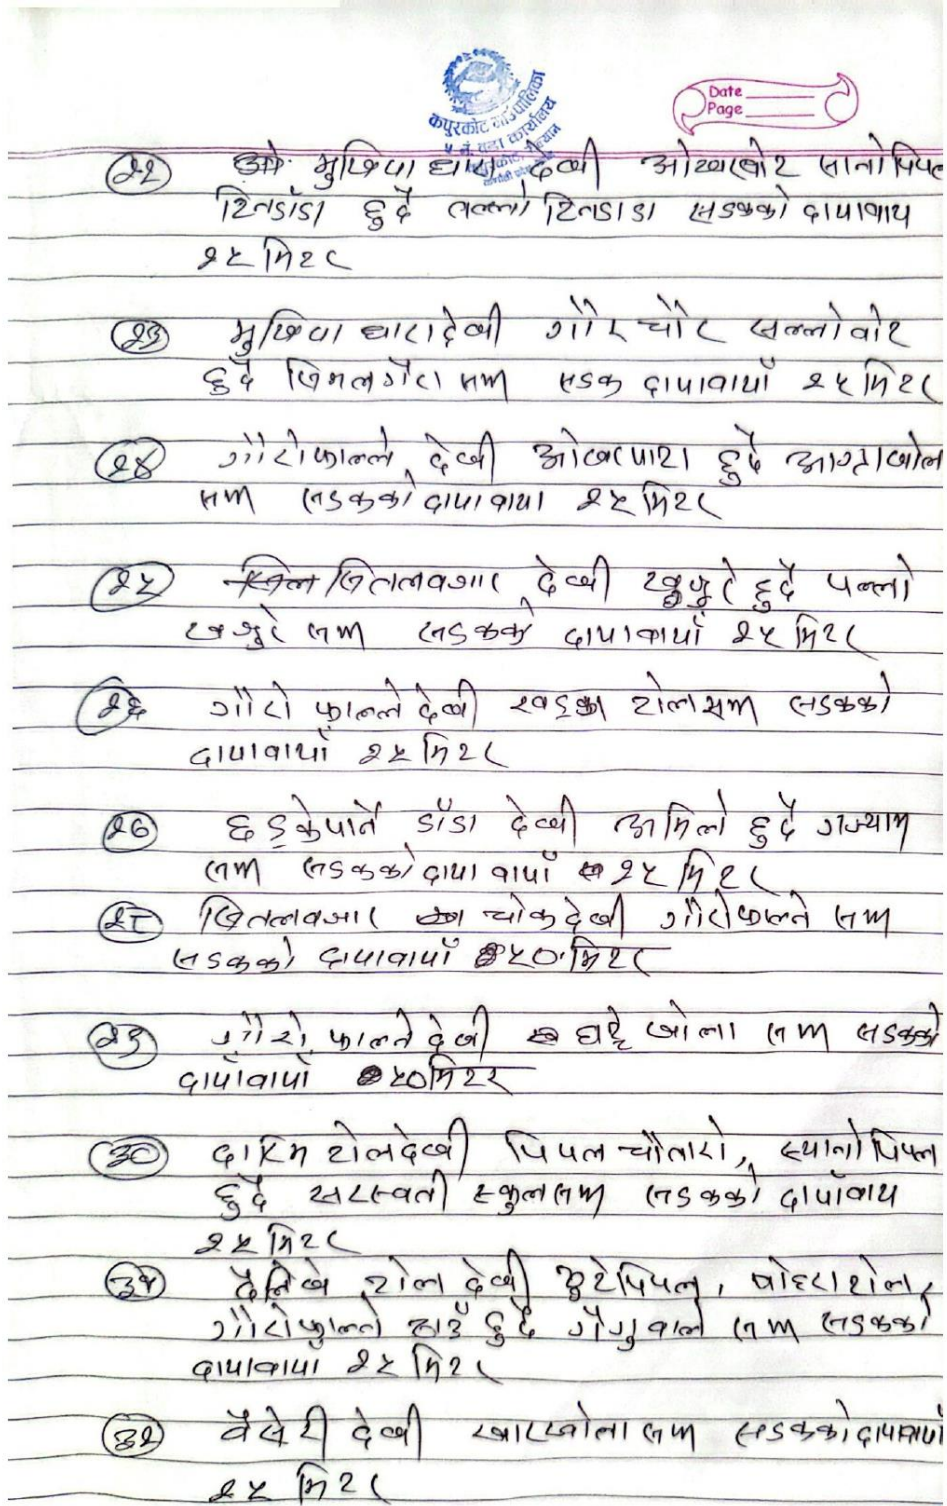 कपुरकोट गाउँपालिका
५ नं. वडा कार्यालय
Date
Page
२२ मुखिया धारा देखी ओखरबोट सानोपिपल
टिनडाँडा हुदै तल्लो टिनडाडा सडकको दायावाय
२५ मिटर
२३ मुखिया धारादेखी गौर चौर सल्लोबोट
हुदै सिमलगैरा सम्म सडक दायावायाँ २५ मिटर
२४ गौरोफाल्ने देखी ओखरपारा हुदै खोल
सम्म सडकको दायावाया २५ मिटर
२५ शितलवजार देखी खजुरे हुदै पल्लो
खजुरे सम्म सडकको दायावायाँ २५ मिटर
२६ गौरो फाल्ने देखी खड्का टोलसम्म सडकको
दायावायाँ २५ मिटर
२७ छड्केपाते डाँडा देखी अमिलो हुदै गज्याम
सम्म सडकको दाया वायाँ २५ मिटर
२८ शितलवजार चोकदेखी गौरोफाल्ने सम्म
सडकको दायावायाँ ५० मिटर
२९ गौरो फाल्ने देखी घट्टे खोला सम्म सडकको
दायाँवायाँ ५० मिटर
३० दारिम टोलदेखी पिपल चौतारो, स्यानोपिपल
हुदै सरस्वती स्कुलसम्म सडकको दायाँवाय
२५ मिटर
३१ टोल देखी फुटेपिपल, पोहरा टोल,
गौरोफाल्ने ठाउँ हुदै सम्म सडकको
दायावाया २५ मिटर
३२ वैसेरी देखी खारखोला सम्म सडकको दायावायाँ
२५ मिटर